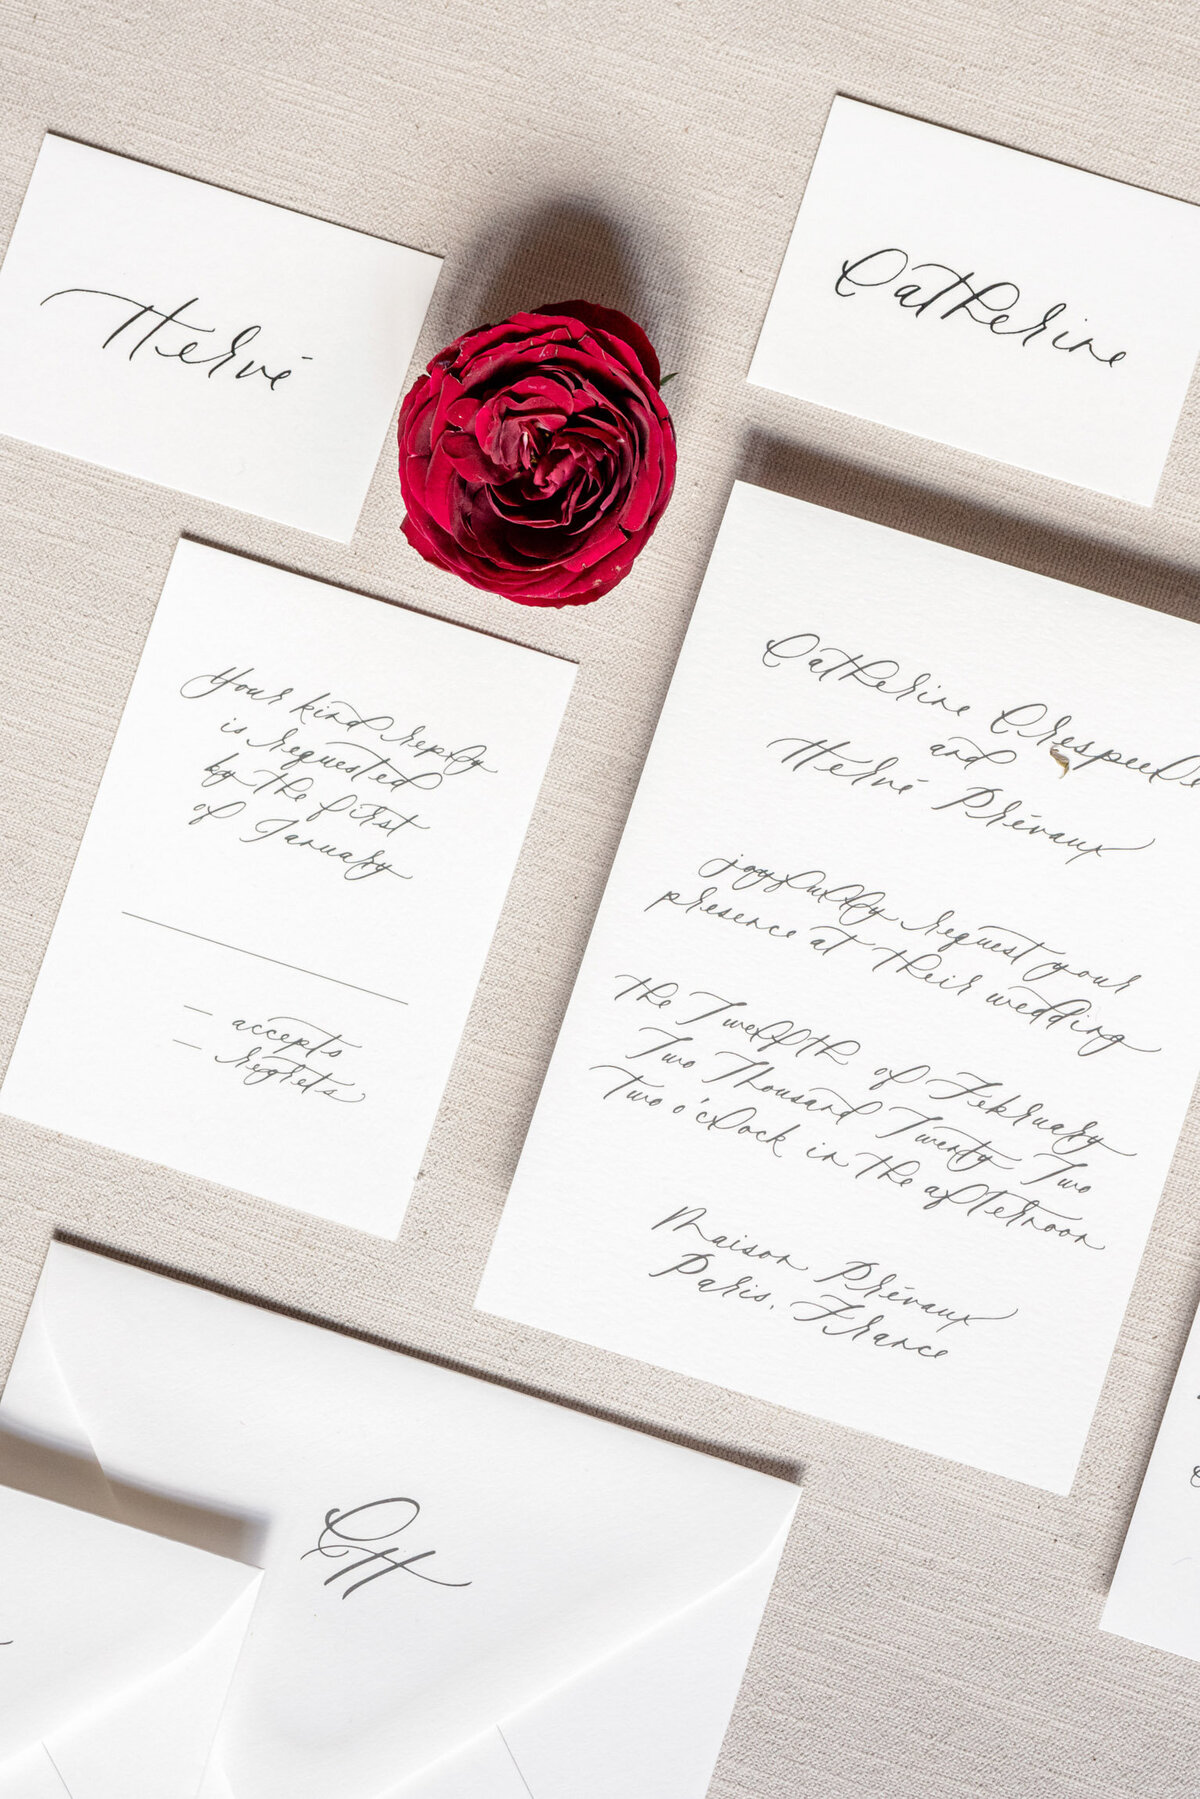 Hervé
Catherine
Your kind reply
is requested
by the first
of January
accepts
regrets
Catherine
and
Hervé Prévaux
joyfully request your
presence at their wedding
the Twelfth of February
Two Thousand Twenty Two
Two o'clock in the afternoon
Maison Prévaux
Paris, France
CH